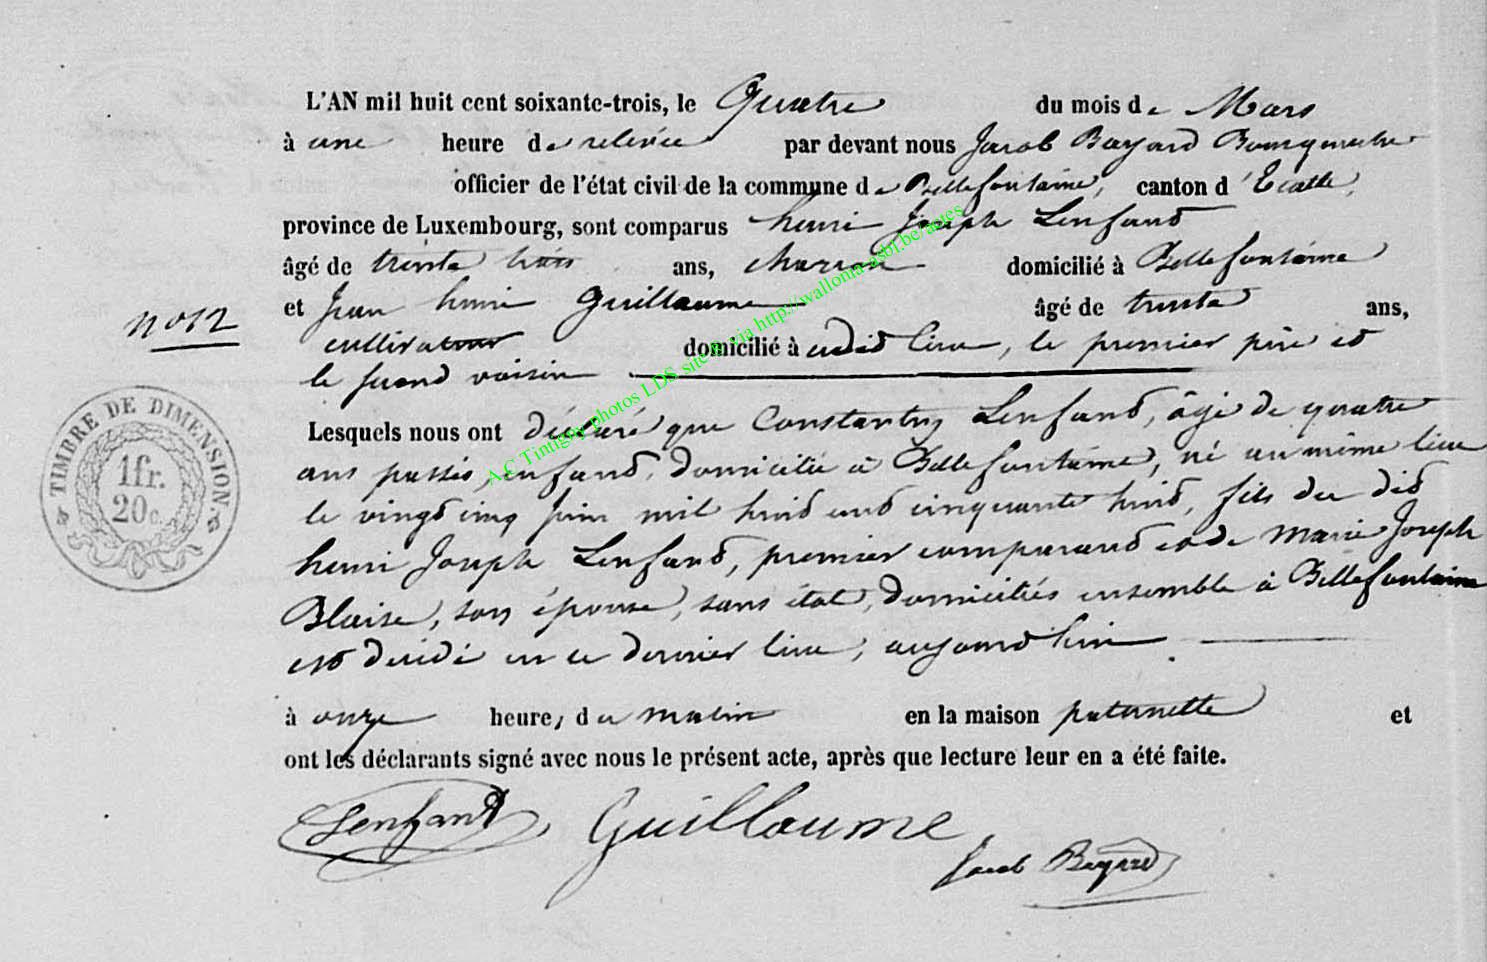 L'AN mil huit cent soixante-trois, le Quatre du mois de Mars
à une heure de relevée par devant nous Jacob Bayard Bourgmestre
officier de l'état civil de la commune de Bellefontaine, canton d'Etalle,
province de Luxembourg, sont comparus henri Joseph Lenfant
âgé de trente trois ans, charron domicilié à Bellefontaine
et Jean henri Guillaume âgé de trente ans,
n° 12
cultivateur domicilié à audit lieu, le premier père et
le second voisin
Lesquels nous ont déclaré que Constantin Lenfant, âgé de quatre
ans passés, enfant, domicilié à Bellefontaine, né au même lieu
le vingt cinq juin mil huit cent cinquante huit, fils du dit
henri Joseph Lenfant, premier comparant et de Marie Joseph
Blaise, son épouse, sans état, domiciliés ensemble à Bellefontaine
est décédé en ce dernier lieu, aujourd'hui
à onze heure, du matin en la maison paternelle et
ont les déclarants signé avec nous le présent acte, après que lecture leur en a été faite.
Lenfant Guillaume
Jacob Bayard
TIMBRE DE DIMENSION.
1fr.
20c.
A.C Tintigny photos LDS site via http://wallonia-asbl.be/actes